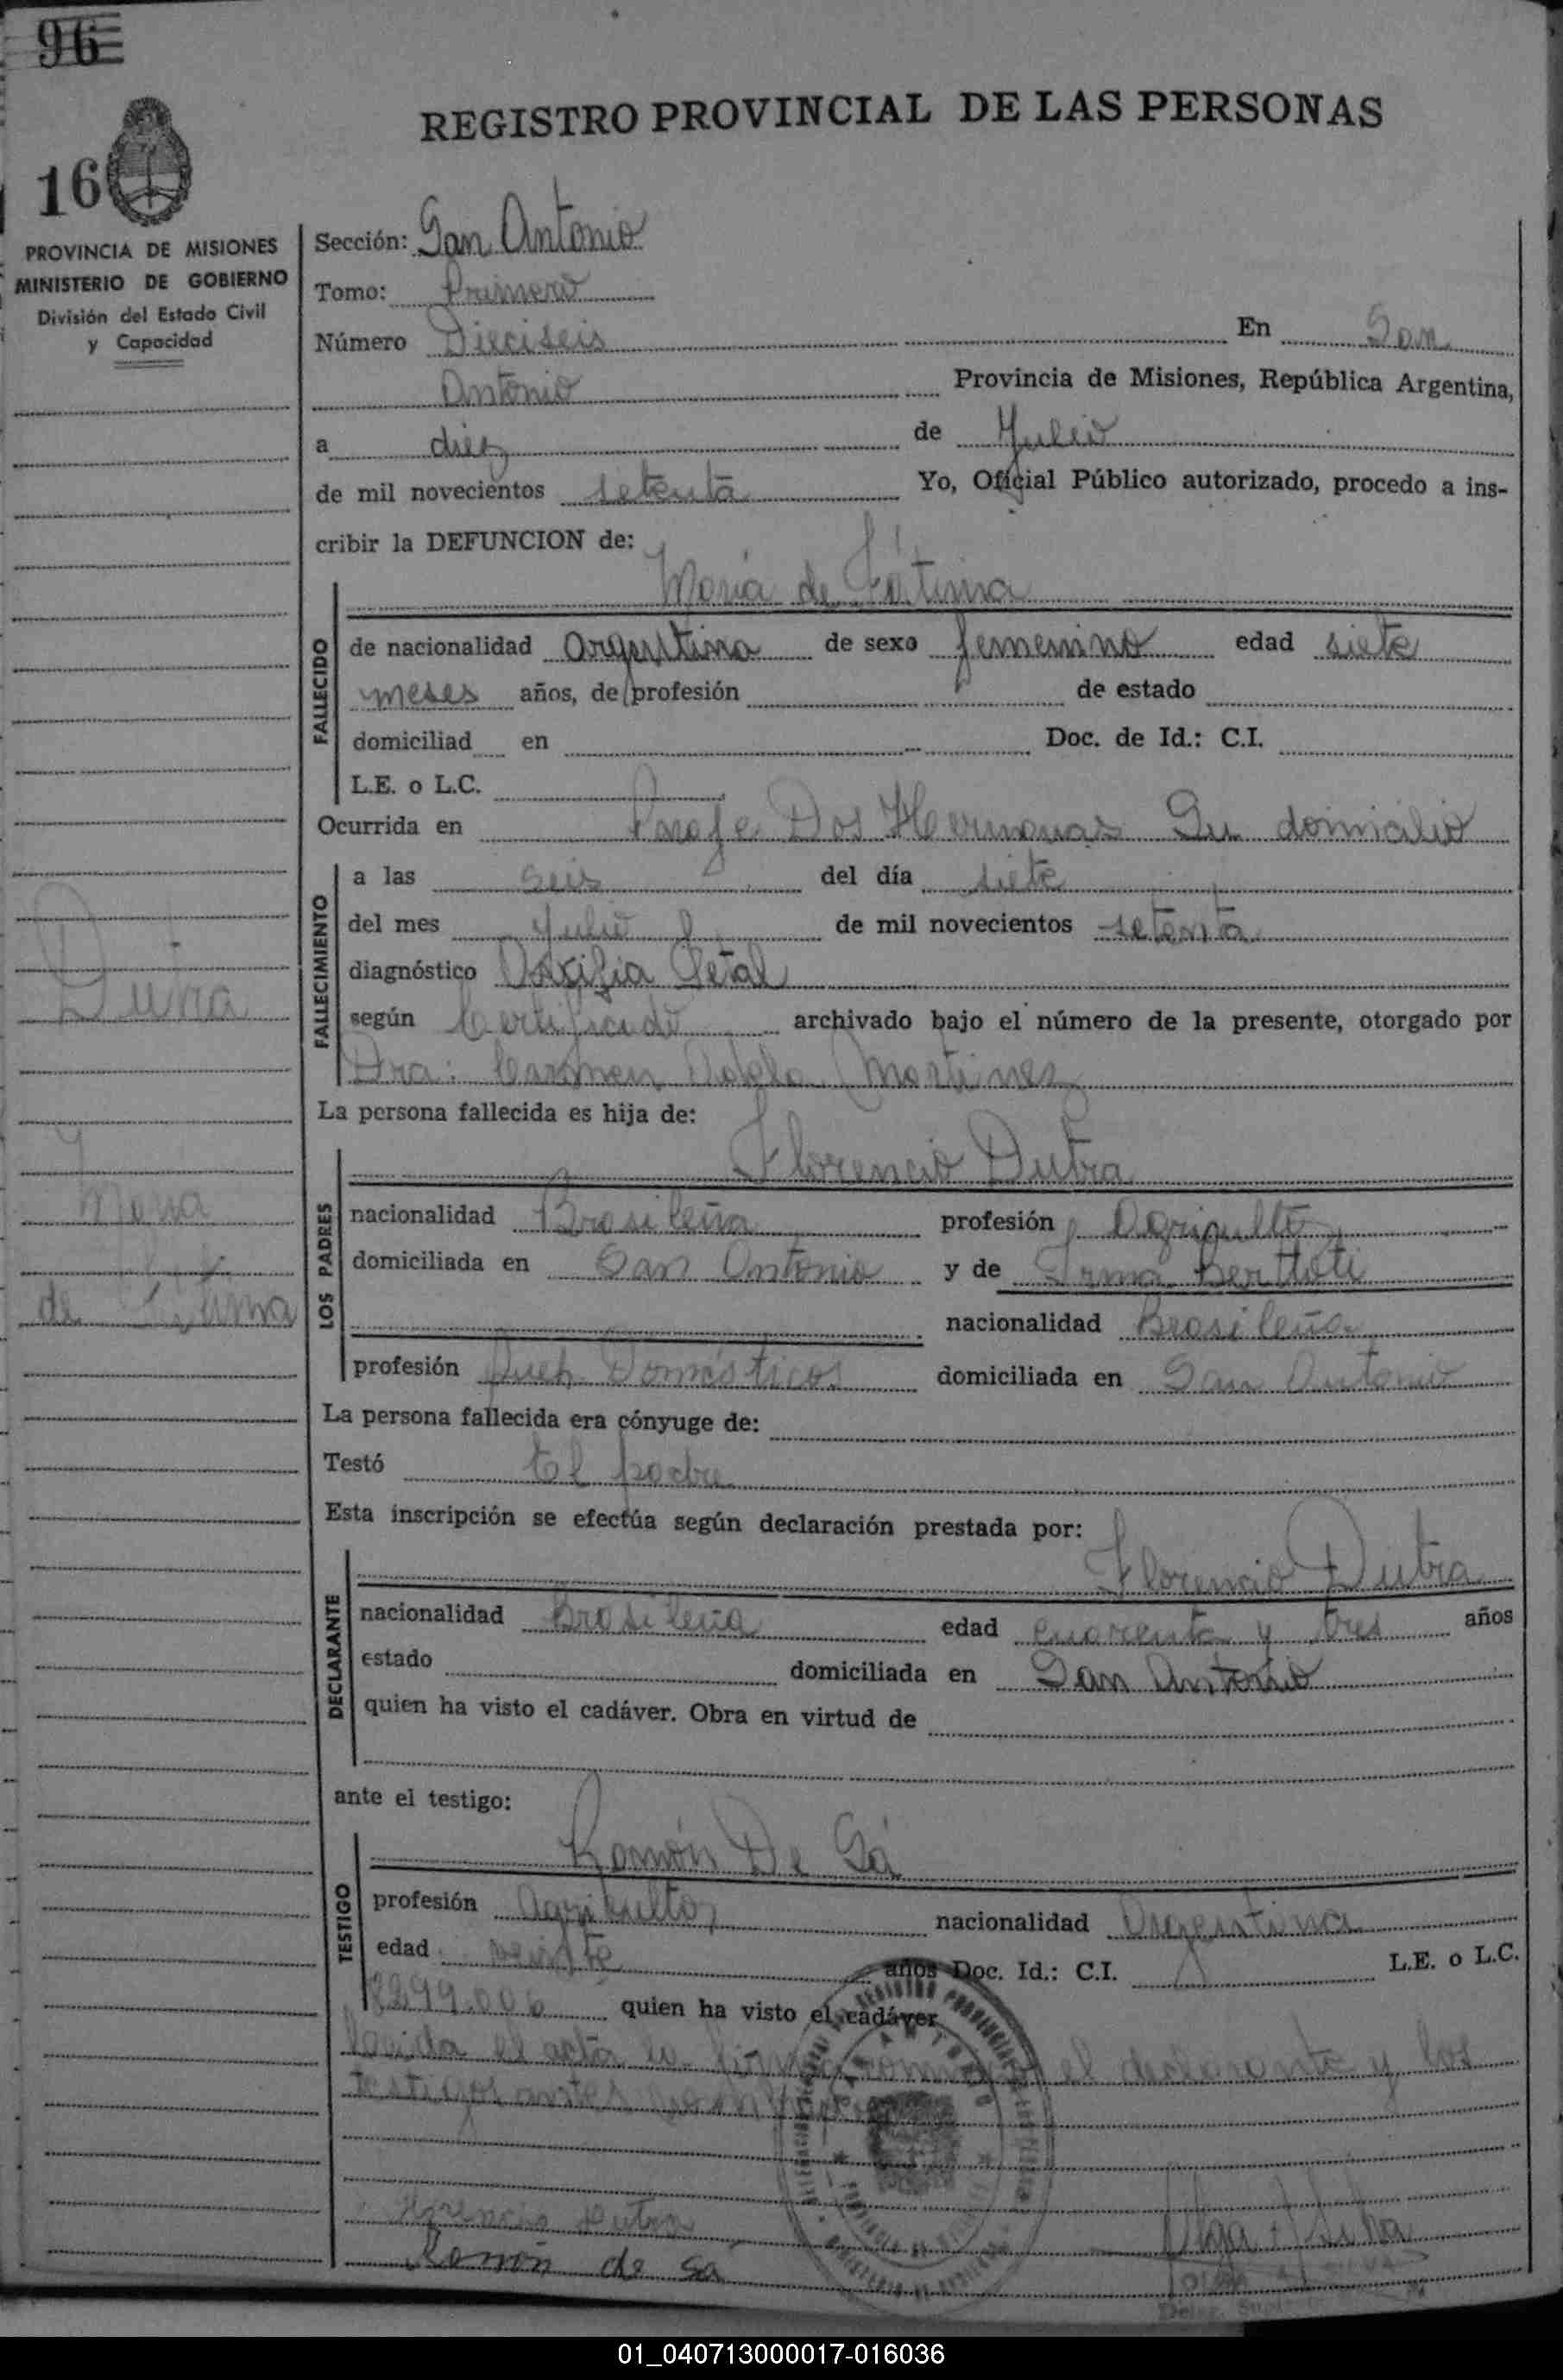 96
REGISTRO PROVINCIAL DE LAS PERSONAS
16
PROVINCIA DE MISIONES
MINISTERIO DE GOBIERNO
División del Estado Civil
y Capacidad
Sección: San Antonio
Tomo: Primero
Número Dieciseis En San
Antonio Provincia de Misiones, República Argentina,
a diez de Julio
de mil novecientos setenta Yo, Oficial Público autorizado, procedo a ins-
cribir la DEFUNCION de:
María de Fátima
FALLECIDO
de nacionalidad argentina de sexo femenino edad siete
meses años, de profesión de estado
domiciliad en Doc. de Id.: C.I.
L.E. o L.C.
Ocurrida en Paraje Dos Hermanas Su domicilio
FALLECIMIENTO
a las seis del día siete
del mes Julio de mil novecientos setenta
diagnóstico Asxifia Fetal
según Certificado archivado bajo el número de la presente, otorgado por
Dra: Carmen Martinez
La persona fallecida es hija de:
Florencio Dutra
LOS PADRES
nacionalidad Brasileña profesión
domiciliada en San Antonio y de Irma
nacionalidad Brasileña
profesión Queh. Domésticos domiciliada en San Antonio
La persona fallecida era cónyuge de:
Testó El padre
Esta inscripción se efectúa según declaración prestada por:
Florencio Dutra
DECLARANTE
nacionalidad Brasileña edad cuarenta y tres años
estado domiciliada en San Antonio
quien ha visto el cadáver. Obra en virtud de
ante el testigo:
Ramón De Sá
TESTIGO
profesión agrikultor nacionalidad Argentina
edad veinte años Doc. Id.: C.I. L.E. o L.C.
quien ha visto el cadáver
el acta la el declarante y los
testigos
Dutra
María
de Fátima
Florencio Dutra
Ramón de Sa
01_040713000017-016036